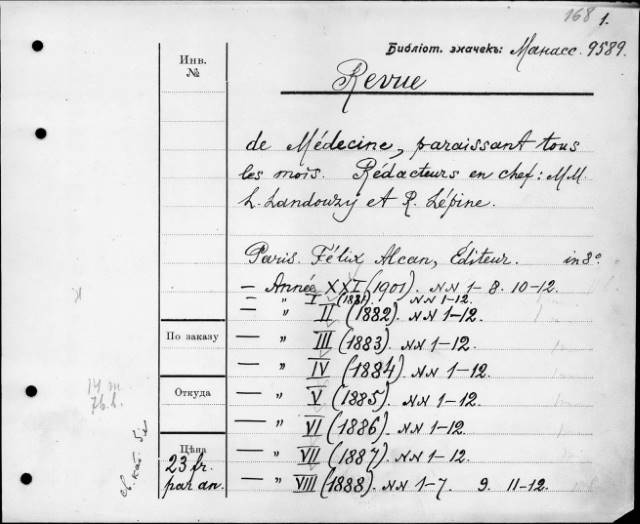 168 1.
Библіот. значекъ: Манасс. 9589.
Инв.
№
Revue
de Médecine, paraissant tous
les mois. Rédacteurs en chef: MM
L. Landouzy et R. Lépine.
Paris. Félix Alcan, Éditeur. in 8°
— Année XXI (1901). NN 1-8. 10-12.
— " I (1881). NN 1-12.
— " II (1882). NN 1-12.
По заказу — " III (1883). NN 1-12.
— " IV (1884). NN 1-12.
Откуда — " V (1885). NN 1-12.
— " VI (1886). NN 1-12.
Цѣна — " VII (1887). NN 1-12.
23 fr.
par an. — " VIII (1888). NN 1-7. 9. 11-12.